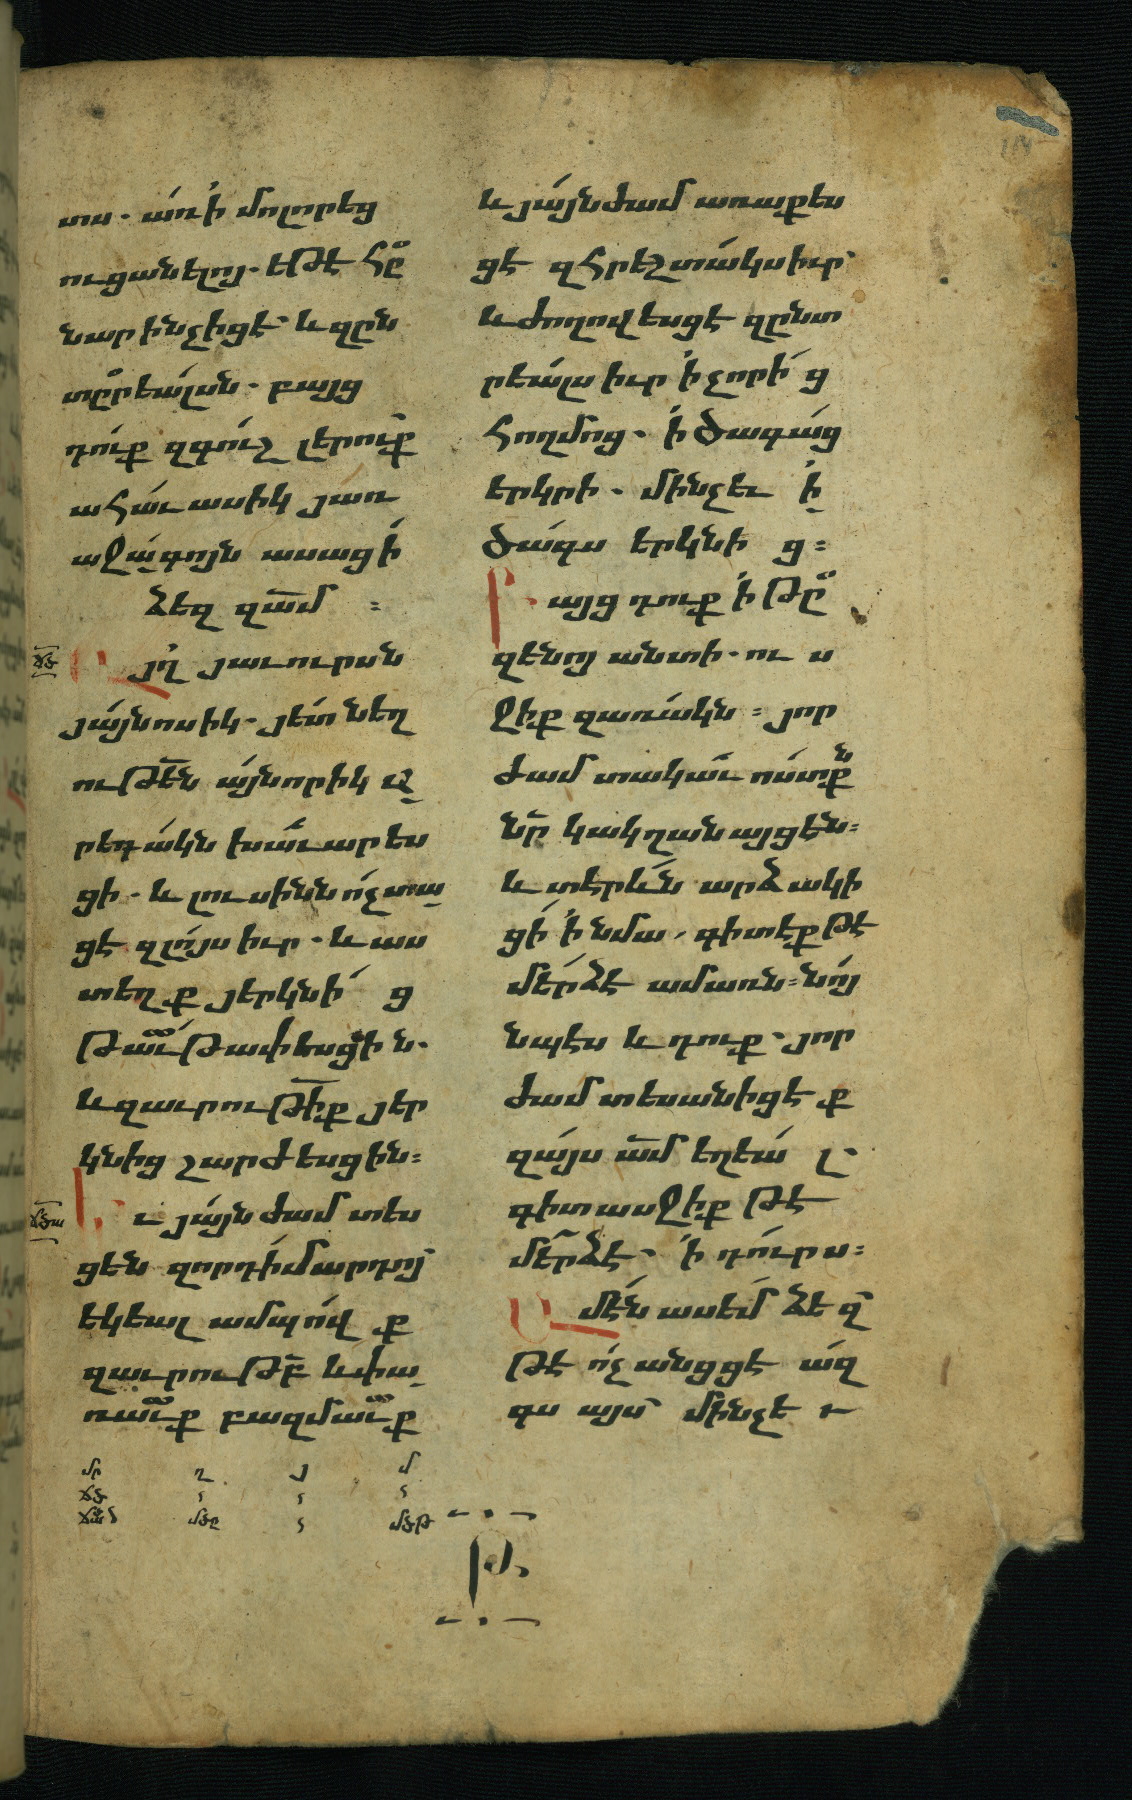 տս. առ ի մոլորեց
ուցանելոյ. եթէ հը
նար ինչ իցէ՝ և զըն
տըրեալսն. բայց
դուք զգոյշ լերուք
ահաւասիկ յառ
աջագոյն ասացի
ձեզ զամ :
յղ յաւուրսն
յայնոսիկ. յետ նեղ
ութեն այնորիկ ար
րեգակն խաւարես
ցի. և լուսինն ոչ տա
ցէ զլոյս իւր. և աս
տեղք յերկնից
թաւթափեսցին.
և զաւրութիք յեր
կնից շարժեսցին:
ւ յայնժամ տես
ցեն զորդի մարդոյ
եկեալ ամպովք
զաւրութբ և փա
ռաւք բազմաւք
և յայնժամ առաքես
ցէ զհրեշտակս իւր
և ժողովեսցէ զընտ
րեալս իւր ի չորից
հողմոց. ի ծագաց
երկրի. մինչեւ ի
ծագս երկնից:
այց դուք ի թը
զենոյ անտի. ու ս
ջիք զառակն : յոր
ժամ տակաւ ոստքն
նր կակղանայցեն:
և տերևն արձակի
ցի ի նմա, գիտէք թէ
մերձ է ամառն: նոյ
նպէս և դուք. յոր
ժամ տեսանիցէք
զայս ամ եղեալ.
գիտասջիք թէ
մերձ է. ի դուրս:
մէն ասեմ ձեզ
թէ ոչ անցցէ ազ
գս այս՝ մինչև
մր ղ յ մ
ճծ